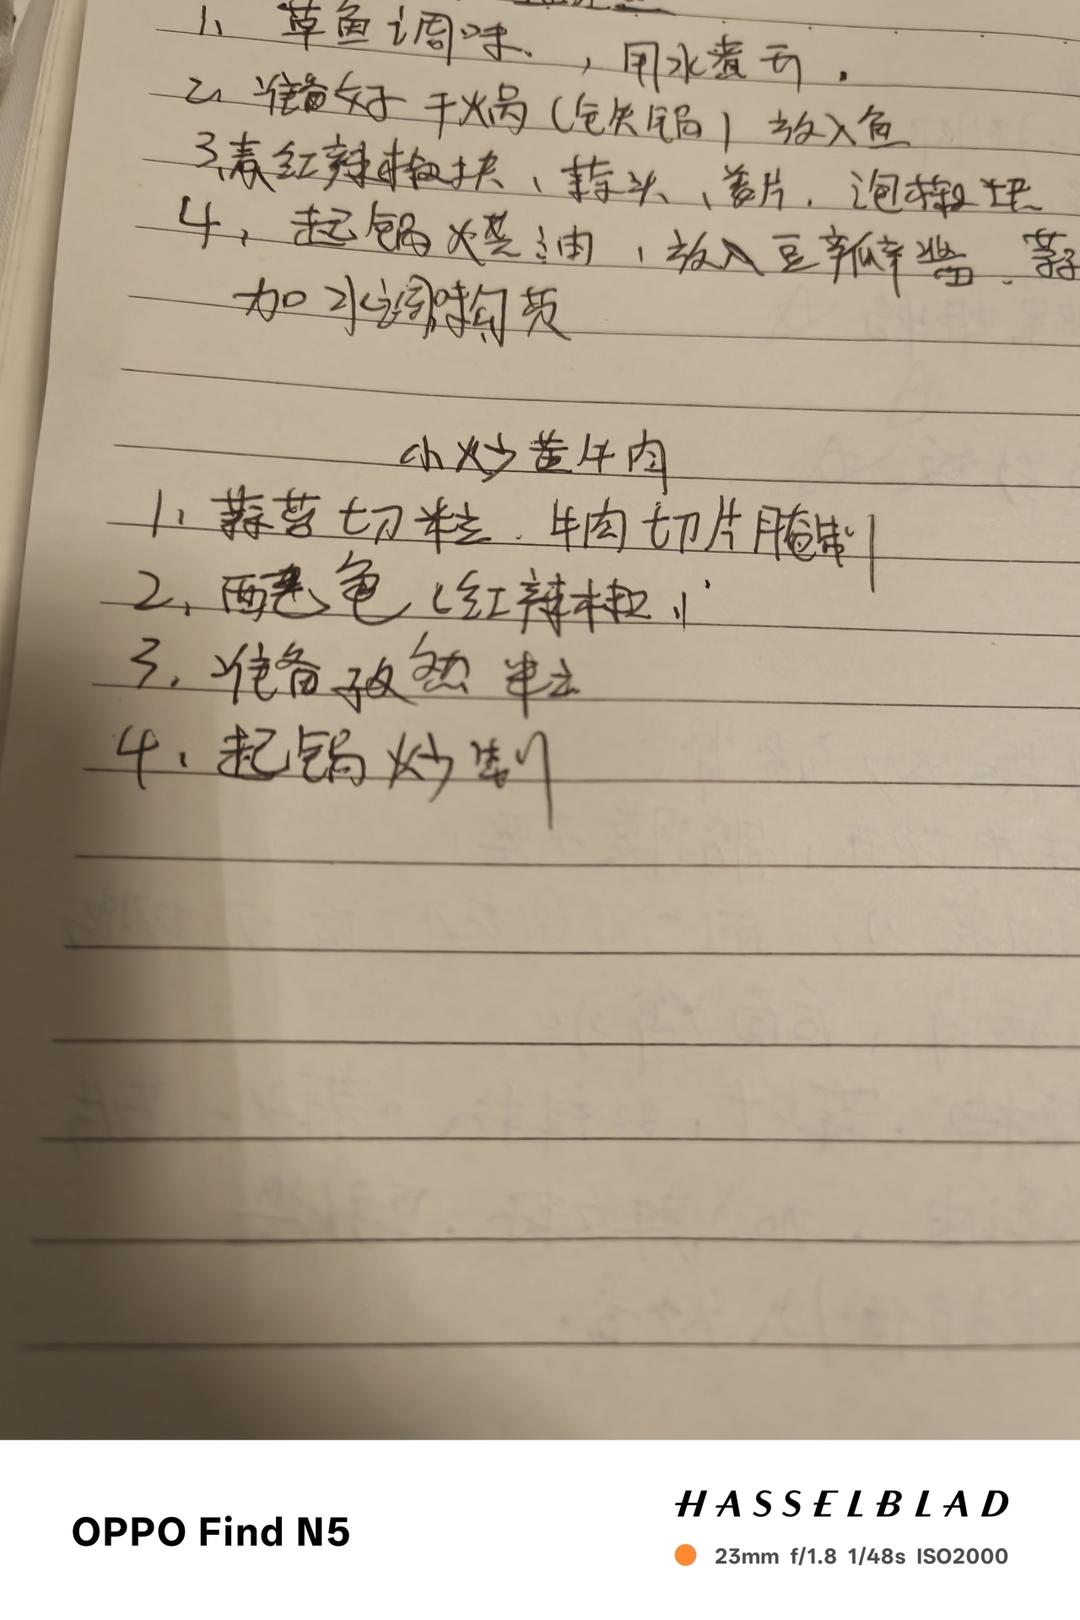 1、草鱼调味、,用水煮开.
2、准备好干火锅(铁锅)放入鱼
3、青红辣椒块、蒜头、姜片.泡椒
4、起锅烧油,放入豆瓣酱.
加水调味勾芡
小炒黄牛肉
1、蒜苔切粒.牛肉切片腌制
2、配色(红辣椒)
3、准备孜然粒
4、起锅炒制
OPPO Find N5
HASSELBLAD
23mm f/1.8 1/48s ISO2000